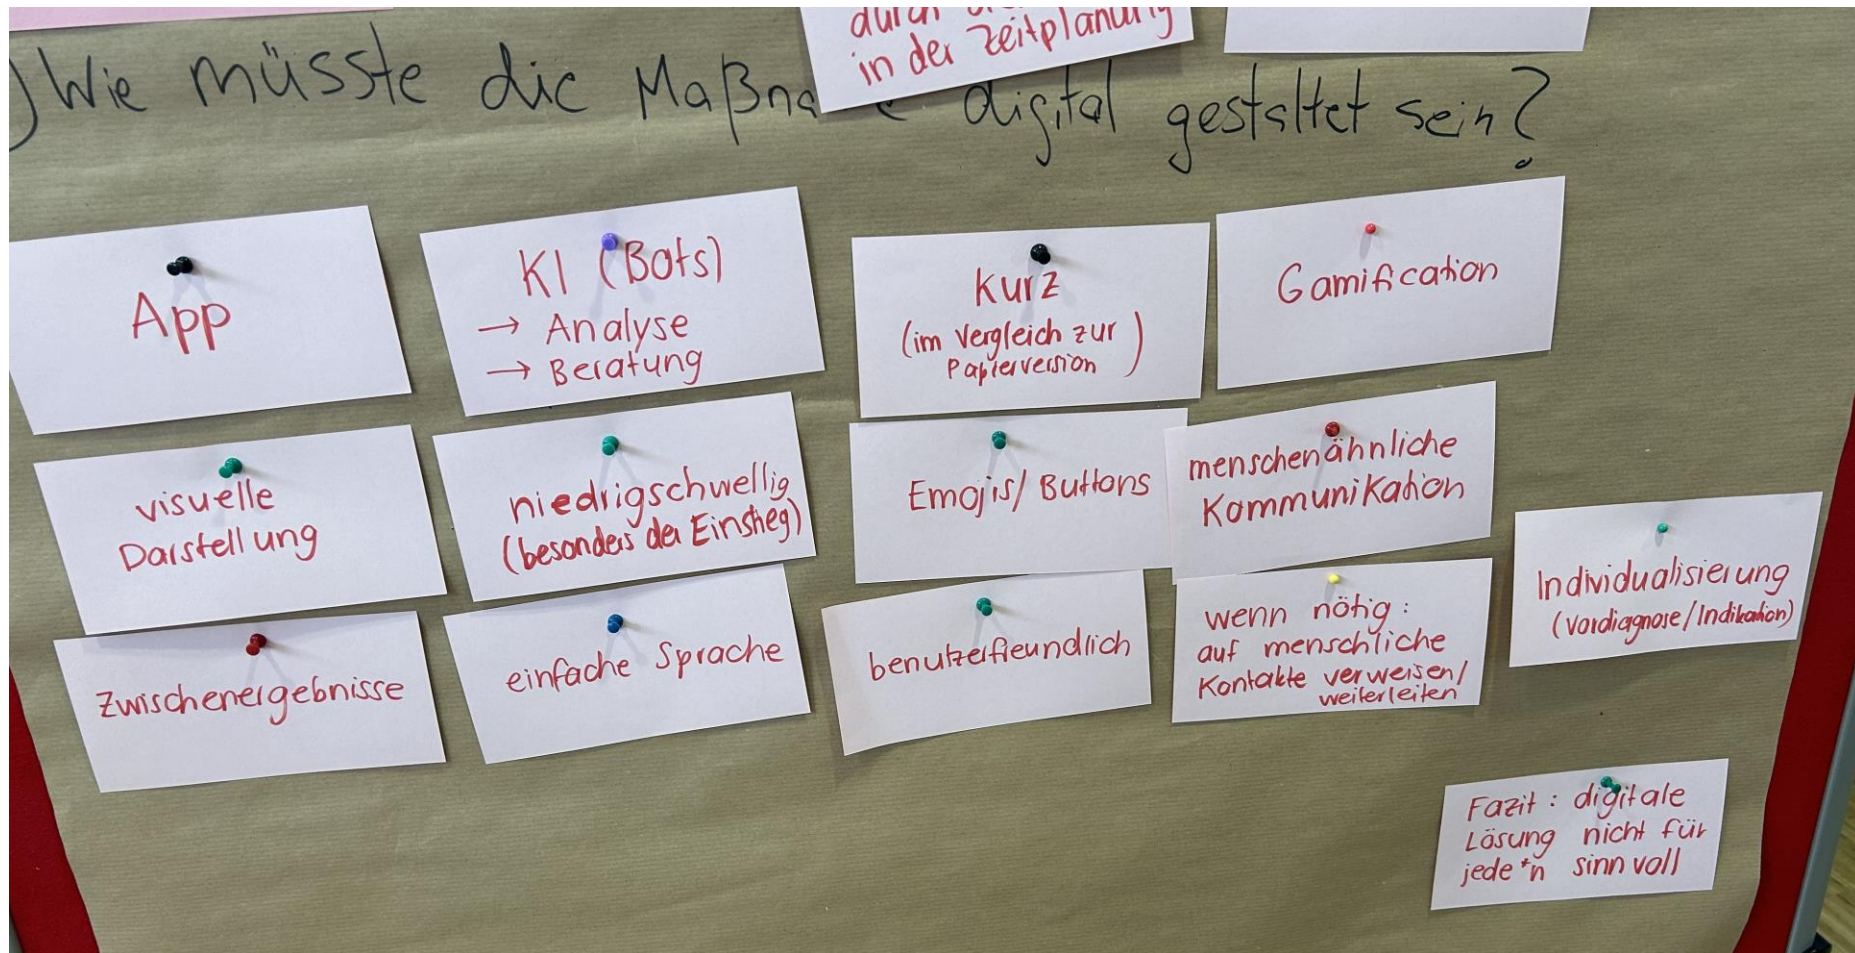 in der Zeitplanung
Wie müsste die Maßna e digital gestaltet sein?
App
KI (Bots)
→ Analyse
→ Beratung
Kurz
(im Vergleich zur
Papierversion)
Gamification
visuelle
Darstellung
niedrigschwellig
(besonders der Einstieg)
Emojis/Buttons
menschenähnliche
Kommunikation
Individualisierung
(Vordiagnose/Indikation)
Zwischenergebnisse
einfache Sprache
benutzerfreundlich
wenn nötig:
auf menschliche
Kontakte verweisen/
weiterleiten
Fazit: digitale
Lösung nicht für
jede*n sinnvoll